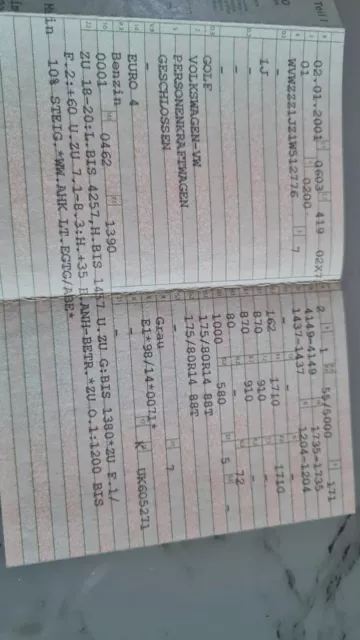 Teil I
02.01.2001 0603 419
01 0200
WVWZZZ1JZ1W512776 7
1J
-
-
GOLF
VOLKSWAGEN-VW
PERSONENKRAFTWAGEN
GESCHLOSSEN
-
EURO 4
Benzin
0001 0462 1390
2 1 55/5000 171
4149-4149 1735-1735
1437-1437 1204-1204
-
162 1710 1710
870 910 -
870 910 -
80 - 72
1000 580 5 -
175/80R14 88T
175/80R14 88T
- - 7
Grau
E1*98/14*0071* K UK605271
-
ZU 18-20:L.BIS 4257,H.BIS 1457 U.ZU G:BIS 1380*ZU F.1/
F.2:+60 U.ZU 7.1-8.3:H.+35 B.ANH-BETR.*ZU O.1:1200 BIS
10% STEIG.*WW.AHK LT.EGTG/ABE*